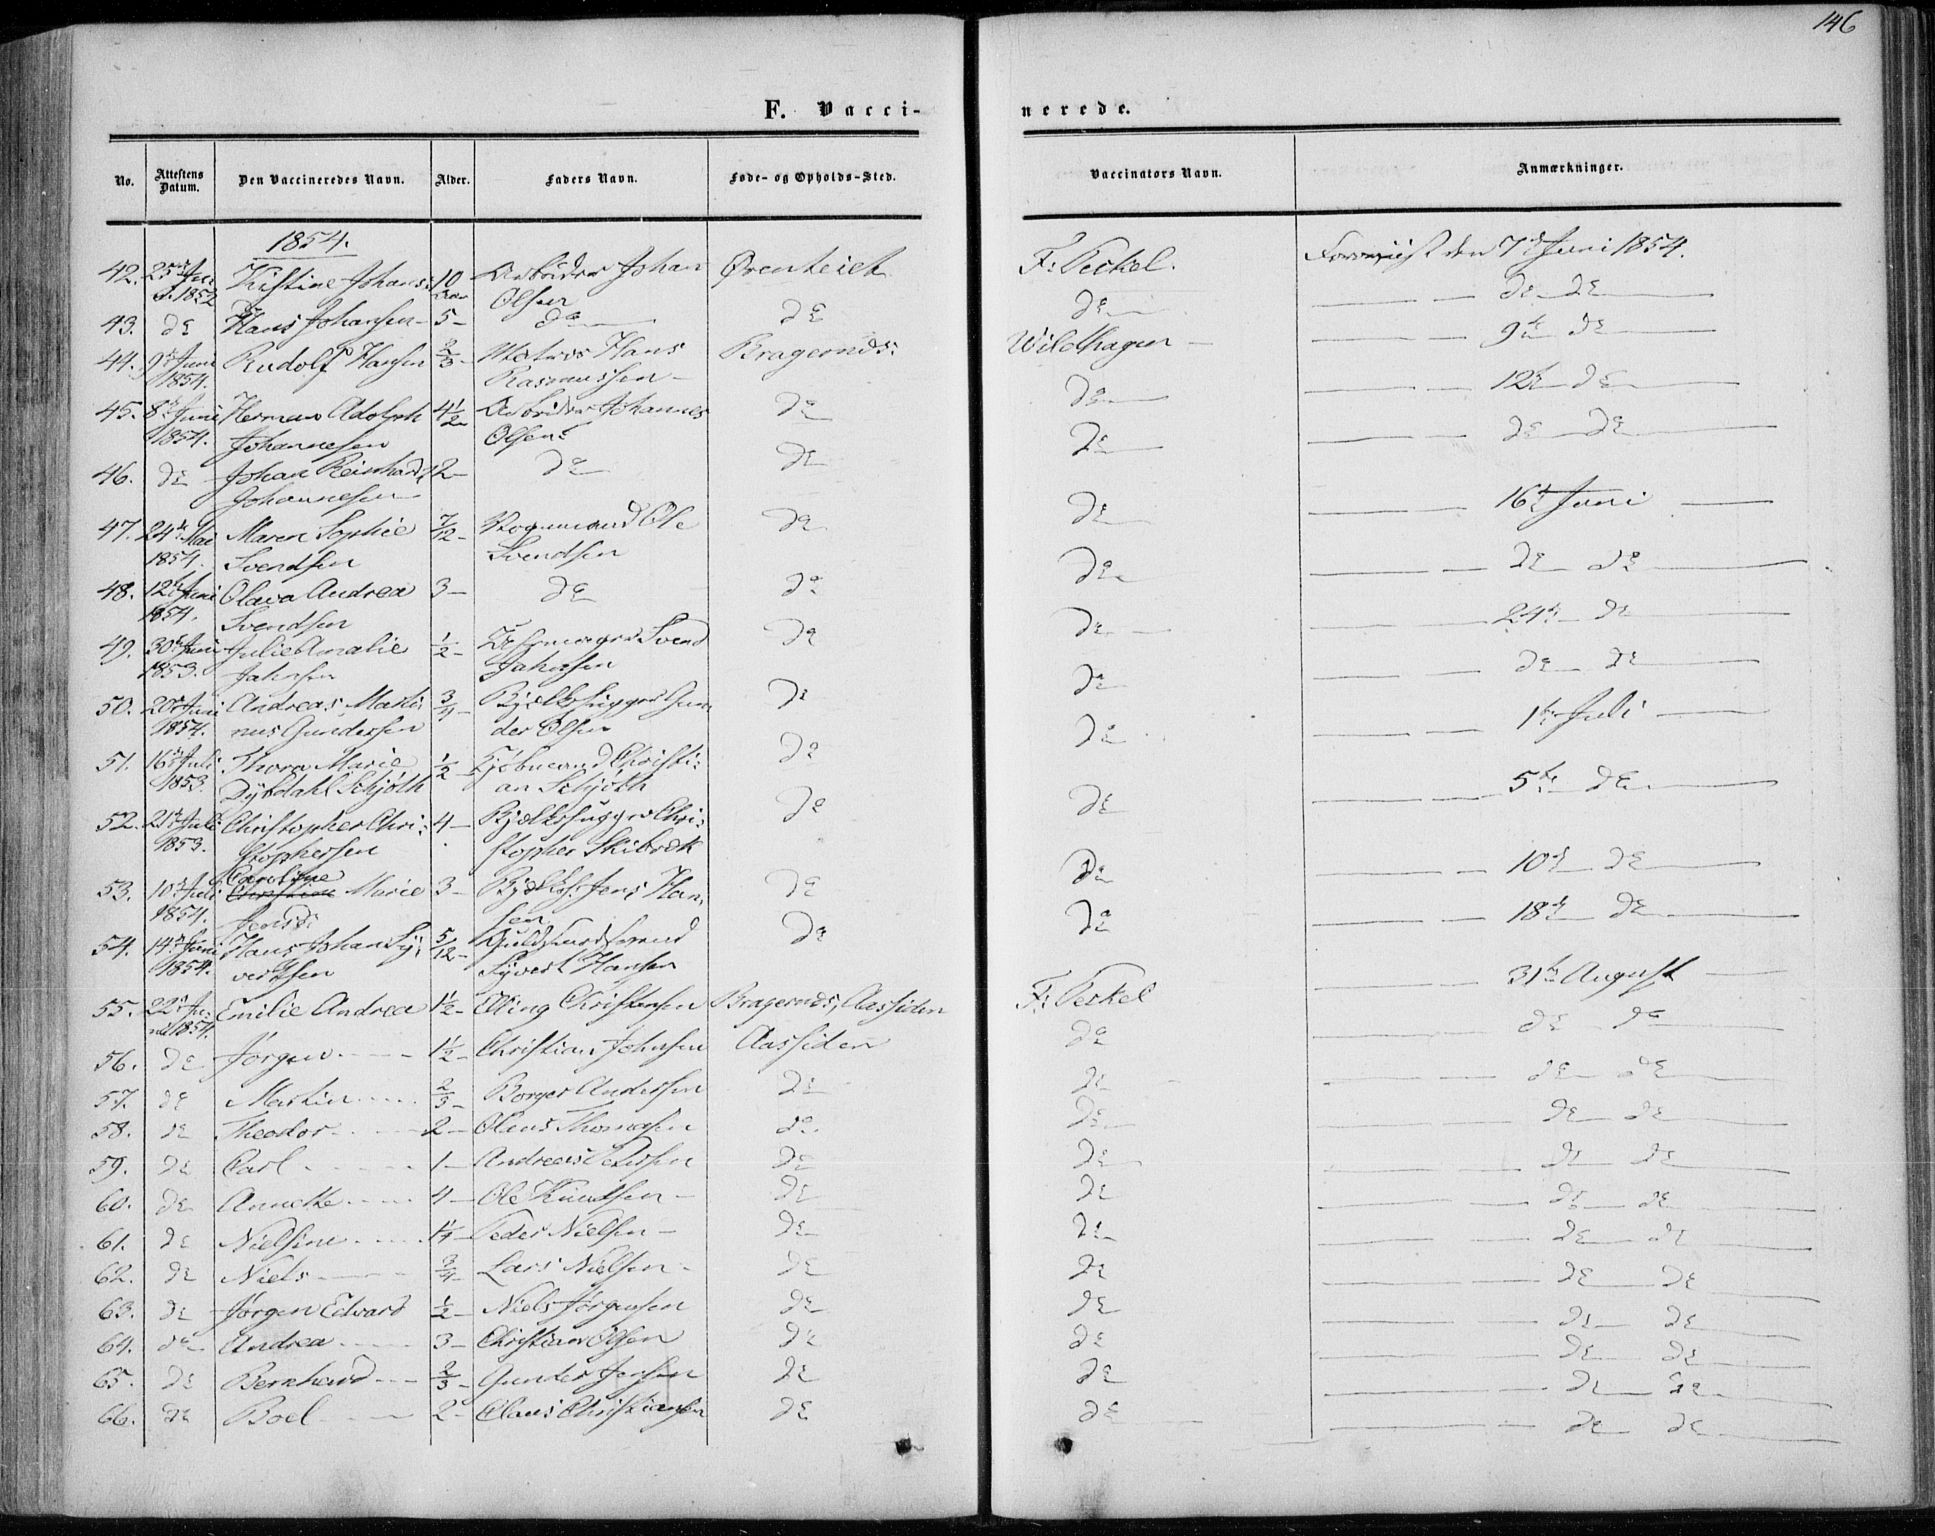 146
F. Vacci-
nerede.
No.
Attestens Datum.
Den Vaccineredes Navn.
Alder.
Faders Navn.
Føde- og Opholds-Sted.
Vaccinators Navn.
Anmærkninger.
1854.
42. Johans: 10 Arbeider Johan F: Peckel. den 7de Juni 1854.
1852 Olsen
43. do Hans Johansen 5 do do do do do
44. 9de Juni Rudolf Hansen 2/3 Matros Hans Bragernæs: Wildhagen 9de do
1854. Rasmussen
45. 8de Juni Herman Adolph 4 1/2 Arbeider Johannes do do 12te do
1854. Johannesen Olsen
46. do Johan Reinhard 2 do do do do do
Johannesen
47. 24de Mai Maren Sophie 7/12 Ole do do 16de Juni
1854. Svendsen Svendsen
48. 12te Juni Olava Andrea 3 do do do do do
1854. Svendsen
49. 30te Juni Julie Amalie 1/2 Svend do do 24de do
1853. Jahnsen Jahnsen
50. 20de Juni Andreas Marti: 3/4 Gun: do do do do
1854. nus Gundersen der Olsen
51. 16de Juli Thora Marie 1/2 Kjøbmand Christi: do do 1ste Juli
1853. Dybdahl Schjøth an Schjøth
52. 21de Juli Christopher Chri: 4 Chri: do do 5te do
1853. stophersen stopher
53. 10de Juli Caroline Marie 3 Jens Han: do do 10de do
1854. Jensd: sen
54. 14de Juni Hans Johan Sy: 5/12 Guldsmedsvend do do 18de do
1854. vertsen Syvert Hansen
55. 22de Ju: Emilie Andrea 1 1/2 Elling Christensen Bragernæs, Aassiden F: Peckel 31te August
ni 1854.
56. do Jørgen 1 1/2 Christian Johnsen Aassiden do do do
57. do Martin Borger Andersen do do do do
58. do Theodor 2 Olaus Thomasen do do do do
59. do Carl 1 Andreas Petersen do do do do
60. do Annette 4 Ole Knudsen do do do do
61. do Nielsine Peder Nielsen do do do do
62. do Niels 3/4 Lars Nielsen do do do do
63. do Jørgen Edvard 1/2 Niels Jørgensen do do do do
64. do Andrea 3 Christian Olsen do do do do
65. do Bernhard 2/3 Gunder Jensen do do do do
66. do Boel 2 Claus Christiansen do do do do